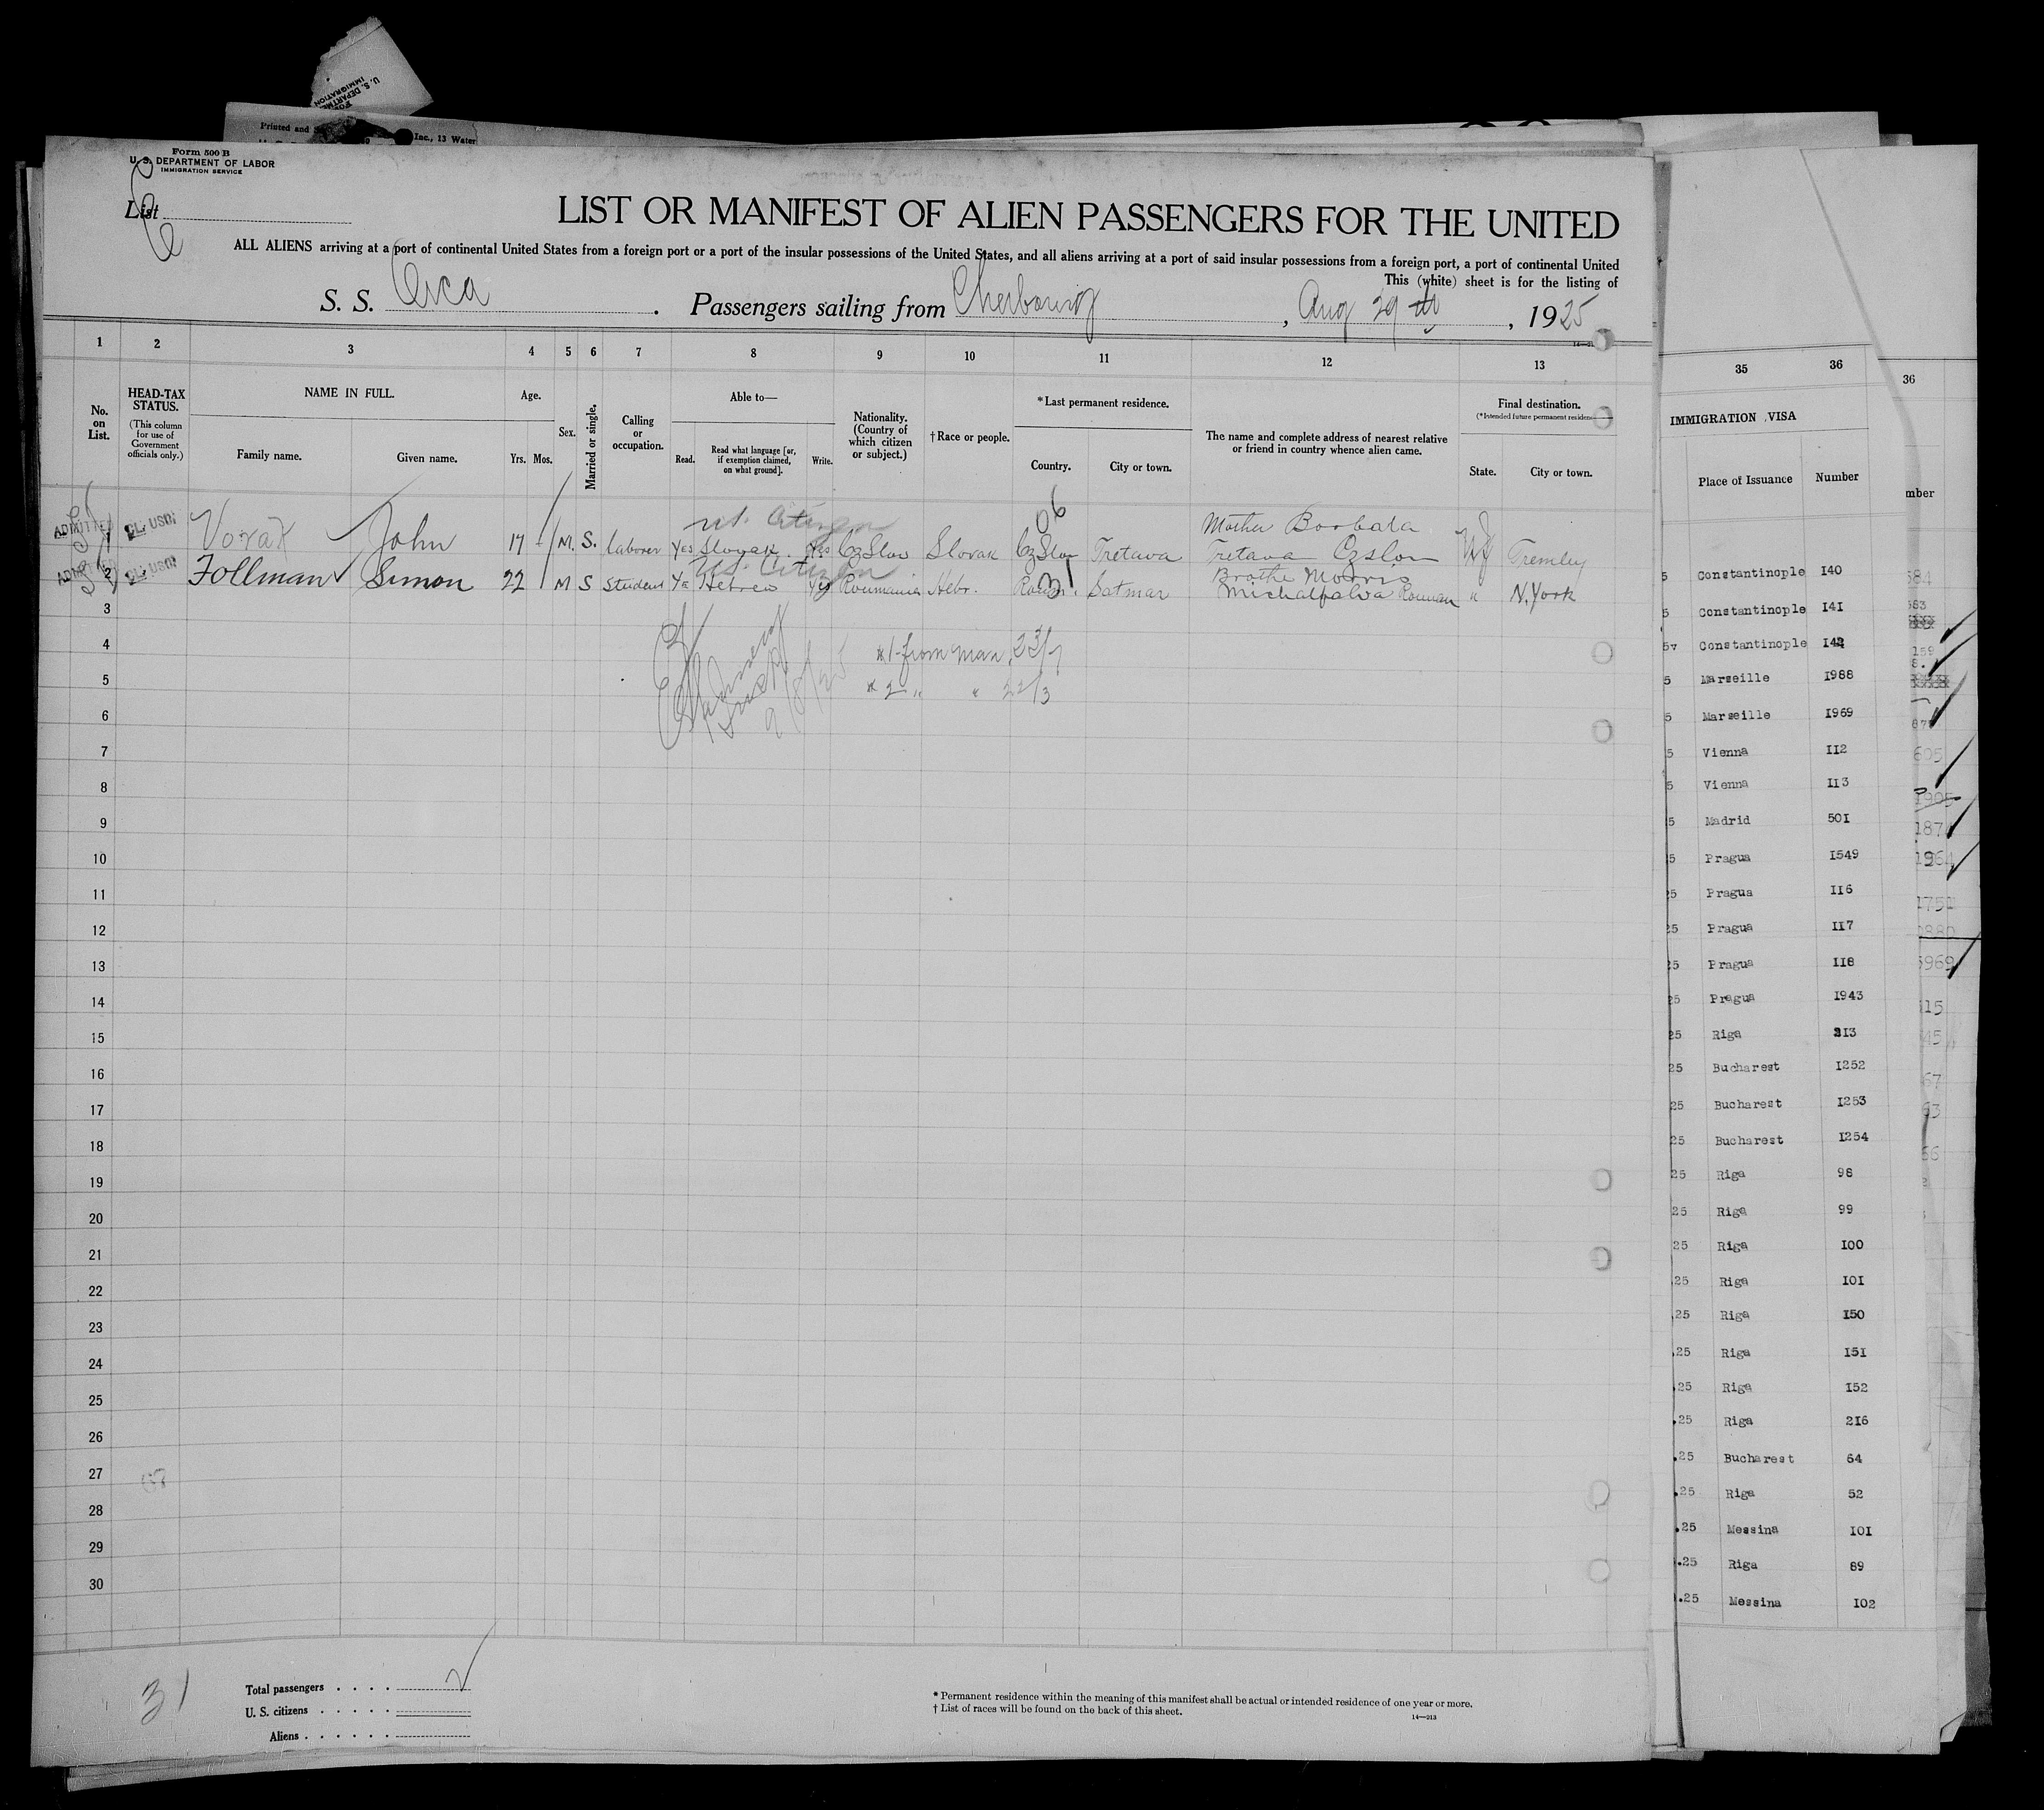 U. S. DEPARTMENT OF LABOR
IMMIGRATION
Printed and
Inc., 13 Water
Form 500 B
U. S. DEPARTMENT OF LABOR
IMMIGRATION SERVICE
List
LIST OR MANIFEST OF ALIEN PASSENGERS FOR THE UNITED
ALL ALIENS arriving at a port of continental United States from a foreign port or a port of the insular possessions of the United States, and all aliens arriving at a port of said insular possessions from a foreign port, a port of continental United
This (white) sheet is for the listing of
S. S. Orca . Passengers sailing from Cherbourg , Aug 29th , 1925
1 2 3 4 5 6 7 8 9 10 11 12 13
No. on List.
HEAD-TAX STATUS.
(This column for use of Government officials only.)
NAME IN FULL.
Family name. Given name.
Age.
Yrs. Mos.
Sex.
Married or single.
Calling or occupation.
Able to—
Read. Read what language [or, if exemption claimed, on what ground]. Write.
Nationality. (Country of which citizen or subject.)
†Race or people.
*Last permanent residence.
Country. City or town.
The name and complete address of nearest relative or friend in country whence alien came.
Final destination.
(*Intended future permanent residence
State. City or town.
06
ADMITTED 1 Vorak John 17 M. S. Laborer Yes Slovak. Yes CzSlov Slovak CzSlov Tretava Mother Barbara
Tretava Czslov NJ Tremley
2 Follman Simon 22 M S Student Ye Hebrew Yes Roumania Hebr. Roum. Satmar Brothe Morris
Michalfalva Rouman " N.York
3
4
*1 from Man. 23/7
5
*2 " " 22/3
6
9/8/25
7
8
9
10
11
12
13
14
15
16
17
18
19
20
21
22
23
24
25
26
27
28
29
30
31
Total passengers . . . .
U. S. citizens . . . . .
Aliens . . . . . .
* Permanent residence within the meaning of this manifest shall be actual or intended residence of one year or more.
† List of races will be found on the back of this sheet.
14—913
35 36
IMMIGRATION VISA
Place of Issuance Number
5 Constantinople 140
5 Constantinople 141
5 Constantinople 142
5 Marseille 1988
5 Marseille 1969
5 Vienna 112
5 Vienna 113
5 Madrid 501
5 Pragua 1549
25 Pragua 116
25 Pragua 117
25 Pragua 118
25 Pragua 1943
25 Riga 213
25 Bucharest 1252
25 Bucharest 1253
25 Bucharest 1254
25 Riga 98
25 Riga 99
25 Riga 100
.25 Riga 101
.25 Riga 150
.25 Riga 151
.25 Riga 152
.25 Riga 216
.25 Bucharest 64
.25 Riga 52
.25 Messina 101
.25 Riga 89
.25 Messina 102
36
mber